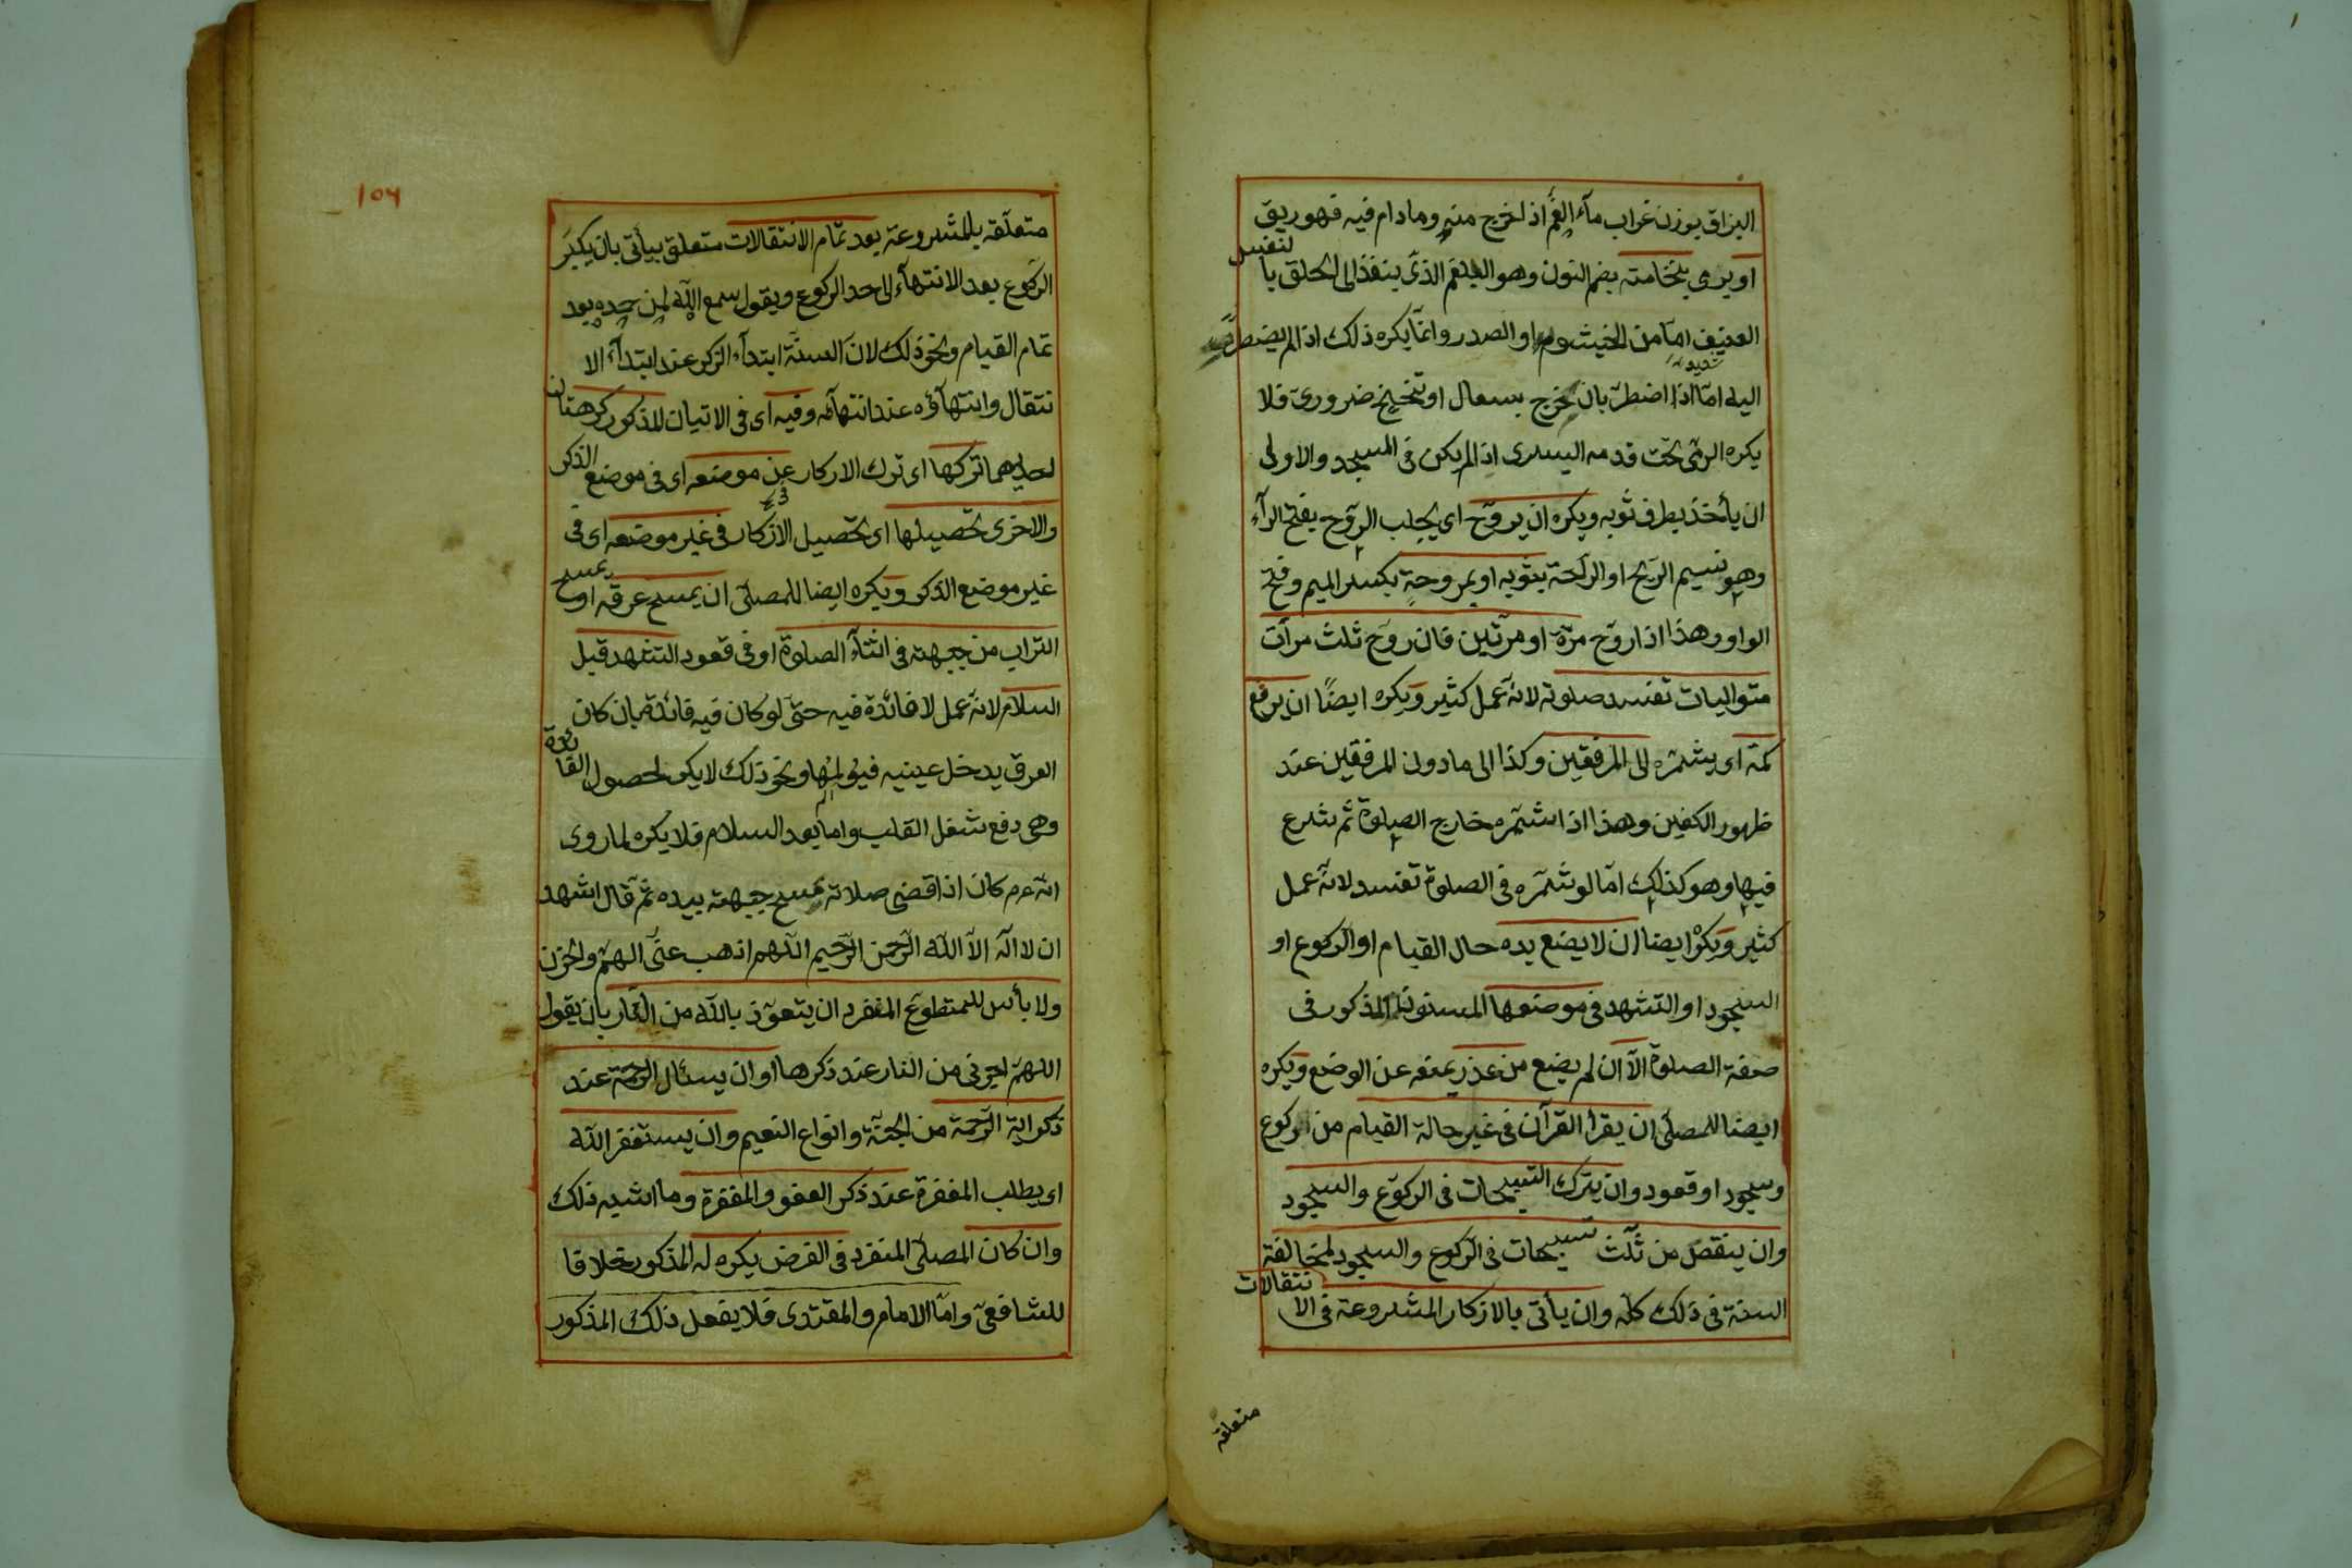 البزاق بوزن غراب مآء الفم اذا خرج منه وما دام فيه فهو ريق
او يرمي بنخامته بضم النون وهو البلغم الذى ينفذ الى الحلق با
لنفس
العنيف امّا من الخيشوم او الصدر وانمّا يكره ذلك اذا لم يضطرّ
شديد
اليه امّا اذا اضطرّ بان خرج بسعال او تنحنح ضرورىّ فلا
يكره الرمى تحت قدمه اليسرى اذا لم يكن فى المسجد والاولى
ان يأخذ بطرف ثوبه ويكره ان يروّح اى يجلب الرّوح بفتح الرآء
وهو نسيم الريح او الرآئحة بثوبه او بمروحةٍ بكسر الميم وفتح
الواو وهذا اذا روّح مرّة او مرّتين فان روّح ثلث مرّات
متواليات تفسد صلوته لانه عمل كثير ويكره ايضًا ان يرفع
كمّه اى يشمّره الى المرفقين وكذا الى ما دون المرفقين عند
ظهور الكفين وهذا اذا شمّره خارج الصلوة ثم شرع
فيها وهو كذلك امّا لو شمّره فى الصلوة تفسد لانّه عمل
كثير ويكره ايضا ان لا يضع يده حال القيام او الركوع او
السجود او التشهد فى موضعها المسنون المذكور فى
صفة الصلوة الآ ان لم يضع من عذر يمنعه عن الوضع ويكره
ايضا للمصلّى ان يقرأ القرآن فى غير حالة القيام من ركوع
وسجود او قعود وان يترك التسبيحات فى الركوع والسجود
وان ينقص من ثلث تسبيحات فى الركوع والسجود لمخالفة
السنة فى ذلك كلّه وان يأتى بالاذكار المشروعة فى الا
نتقالات
متعلقه
١٥٦
متعلّقه بالمشروعة بعد تمام الانتقالات متعلق بيأتى بان يكبّر
الركوع بعد الانتهآء الى حد الركوع ويقول سمع الله لمن حمده بعد
تمام القيام ونحو ذلك لانّ السنّة ابتدآء الذكر عند ابتدآء الا
نتقال وانتهآؤه عند انتهآئه وفيه اى فى الاتيان المذكور كرهتان
احديهما تركها اى ترك الاذكار عن موضعه اى فى موضع الذكر
والاخرى تحصيلها اى تحصيل الاذكار فى غير موضعه اى فى
غير موضع الذكر ويكره ايضا للمصلّى ان يمسح عرقه او يمسح
التراب من جبهته فى اثنآء الصلوة او فى قعود التشهد قبل
السلام لانه عمل لا فائدة فيه حتى لو كان فيه فائدة بان كان
العرق يدخل عينيه فيؤلمها ونحو ذلك لا يكره لحصول الفا
ئدة
وهى دفع شغل القلب واما بعد السلام فلا يكره لما روى
انه عم كان اذا قضى صلاته مسح جبهته بيده ثم قال اشهد
ان لا اله الا الله الرّحمن الرّحيم اللّهم اذهب عنّى الهمّ والحزن
ولا بأس للمتطوّع المنفرد ان يتعوّذ بالله من النّار بان يقول
اللهمّ اجرنى من النار عند ذكرها او ان يسئال الرحمة عند
ذكر اية الرّحمة من الجنّة وانواع النعيم وان يستغفر الله
اى يطلب المغفرة عند ذكر العفو والمغفرة وما اشبه ذلك
وان كان المصلّى المنفرد فى الفرض يكره له المذكور خلافا
للشافعىّ وامّا الامام والمقتدى فلا يفعل ذلك المذكور